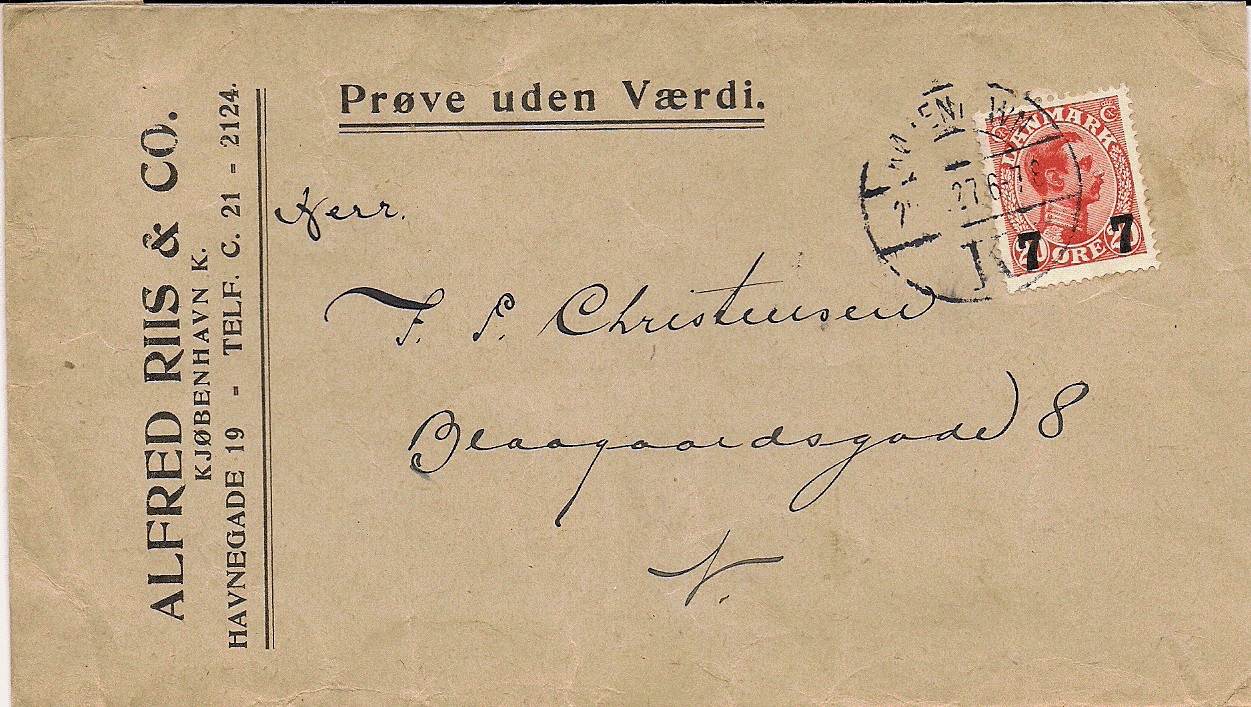 ALFRED RIIS & CO.
KJØBENHAVN K.
HAVNEGADE 19 - TELF. C. 21 - 2124.
Prøve uden Værdi.
Herr.
F. P. Christensen
Blaagaardsgade 8
N.
DANMARK
20 ØRE 20
7 7
K